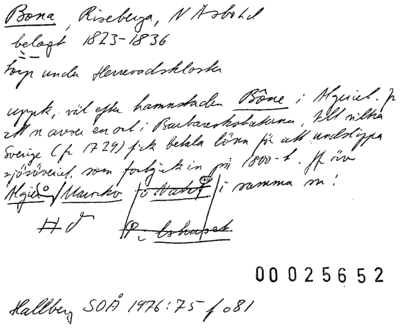 Bona, Riseberga, N Åsbo hd
belagt 1823-1836
torp under Herrevadskloster
uppk, väl efter hamnstaden Bône i Algeriet. Jr
att n avser en ort i Barbareskstaterna, till vilka
Sverige (fr 1729) fick betala lönn för att undslippa
sjöröveriet, som fortgick in på 1800-t. Jfr även
Algier / Marocko i samma sn!
00025652
Hallberg SOÅ 1976:75 f o 81